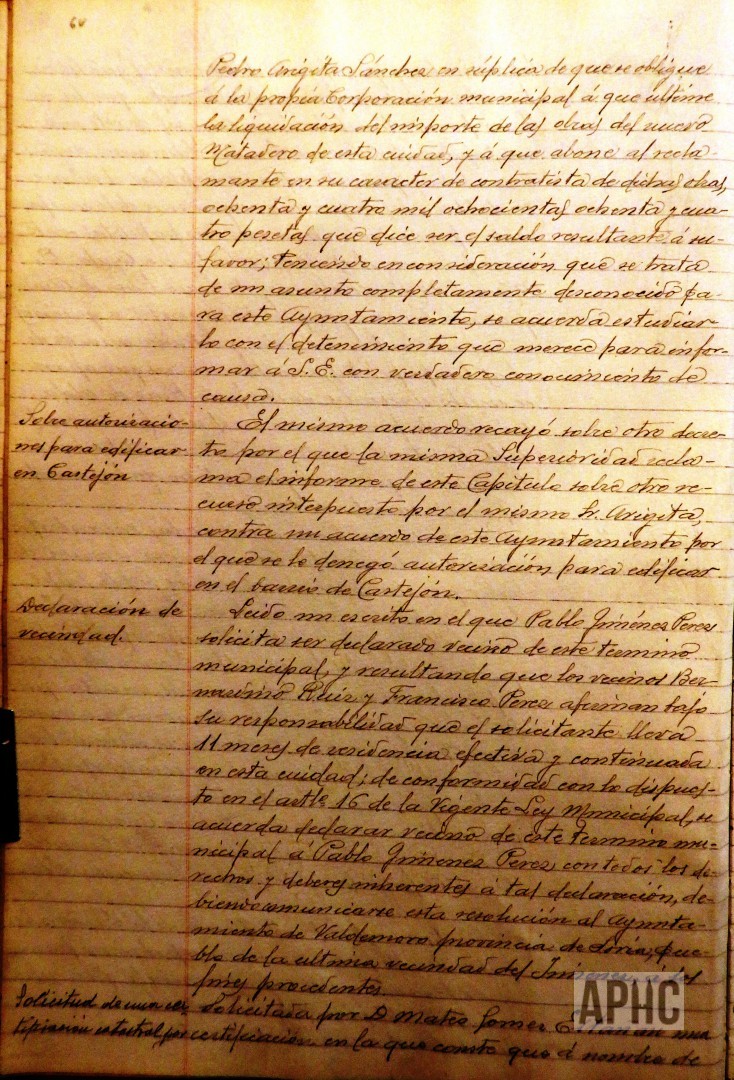 Pedro Arigita Sánchez en súplica de que se obligue
á la propia Corporación municipal á que ultime
la liquidación del importe de las obras del nuevo
Matadero de esta ciudad, y á que abone al recla-
mante en su caracter de contratista de dichas obras,
ochenta y cuatro mil ochocientas ochenta y cua-
tro pesetas que dice ser el saldo resultante á su
favor; teniendo en consideración que se trata
de un asunto completamente desconocido pa-
ra este Ayuntamiento, se acuerda estudiar-
lo con el detenimiento que merece para infor-
mar á S. E. con verdadero conocimiento de
causa.
Sobre autorizacio-
nes para edificar
en Castejón
El mismo acuerdo recayó sobre otro decre-
to por el que la misma Superioridad recla-
ma el informe de este Capitulo sobre otro re-
curso interpuesto por el mismo Sr. Arigita,
contra un acuerdo de este Ayuntamiento por
el que se le denegó autorización para edificar
en el barrio de Castejón.
Declaración de
vecindad.
Leido un escrito en el que Pablo Jiménez Perez
solicita ser declarado vecino de este termino
municipal, y resultando que los vecinos Ber-
nardino Ruiz y Francisco Perez afirman bajo
su responsabilidad que el solicitante lleva
11 meses de residencia efectiva y continuada
en esta ciudad; de conformidad con lo dispues-
to en el artlo 16 de la Vigente Ley Municipal, se
acuerda declarar vecino de este termino mu-
nicipal á Pablo Jimenez Perez con todos los de-
rechos y deberes inherentes á tal declaración, de-
biendo comunicarse esta resolución al Ayunta-
miento de Valdemoro provincia de Soria, pue-
blo de la ultima vecindad del
fines procedentes.
Solicitud de una cer-
tificación catastral por
Solicitada por D. Mateo Gomez una
certificación en la que conste que á nombre de
APHC